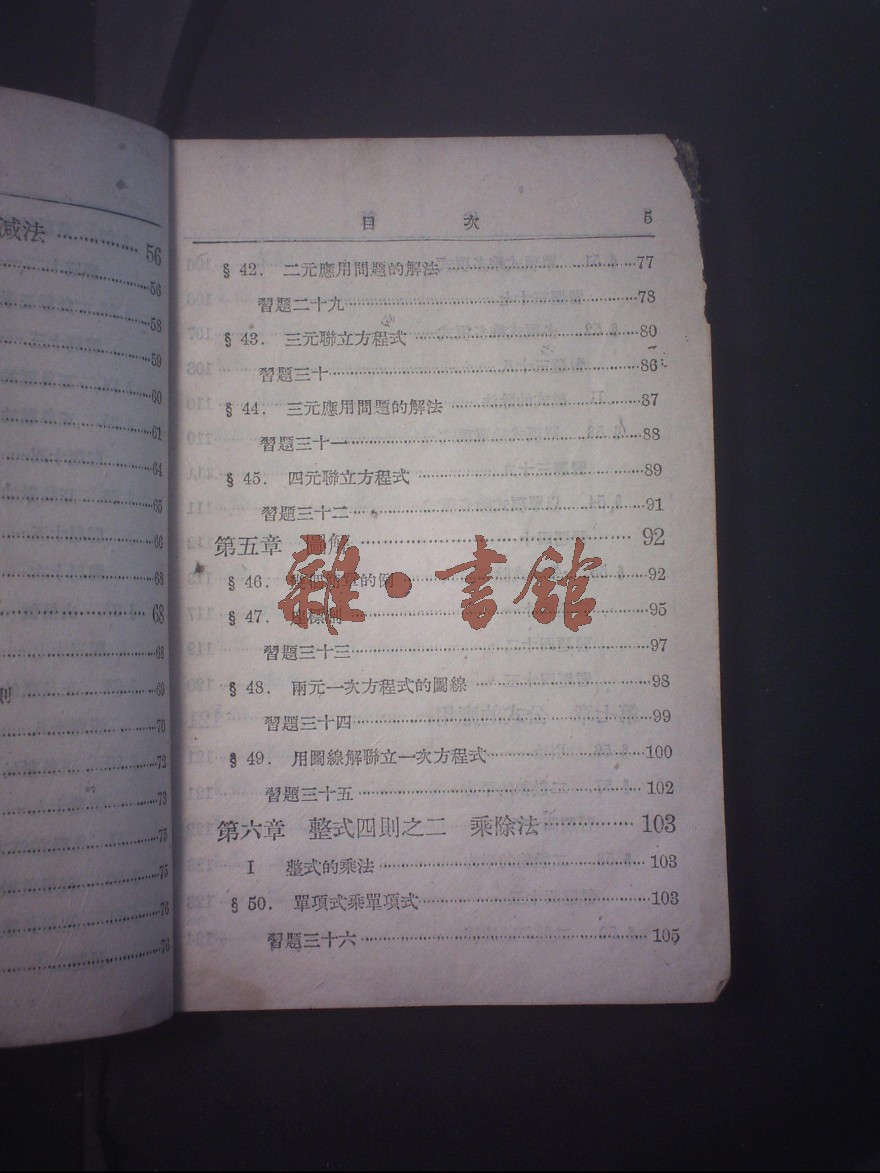 減法 56
56
58
59
60
61
64
65
66
68
68
68
則 69
70
72
73
75
75
76
76
目 次 5
§ 42. 二元應用問題的解法 77
習題二十九 78
§ 43. 三元聯立方程式 80
習題三十 86
§ 44. 三元應用問題的解法 87
習題三十一 88
§ 45. 四元聯立方程式 89
習題三十二 91
第五章 圖解 92
§ 46. 幾個簡單的例 92
§ 47. 座標制 95
雜·書館
習題三十三 97
§ 48. 兩元一次方程式的圖線 98
習題三十四 99
§ 49. 用圖線解聯立一次方程式 100
習題三十五 102
第六章 整式四則之二 乘除法 103
I 整式的乘法 103
§ 50. 單項式乘單項式 103
習題三十六 105